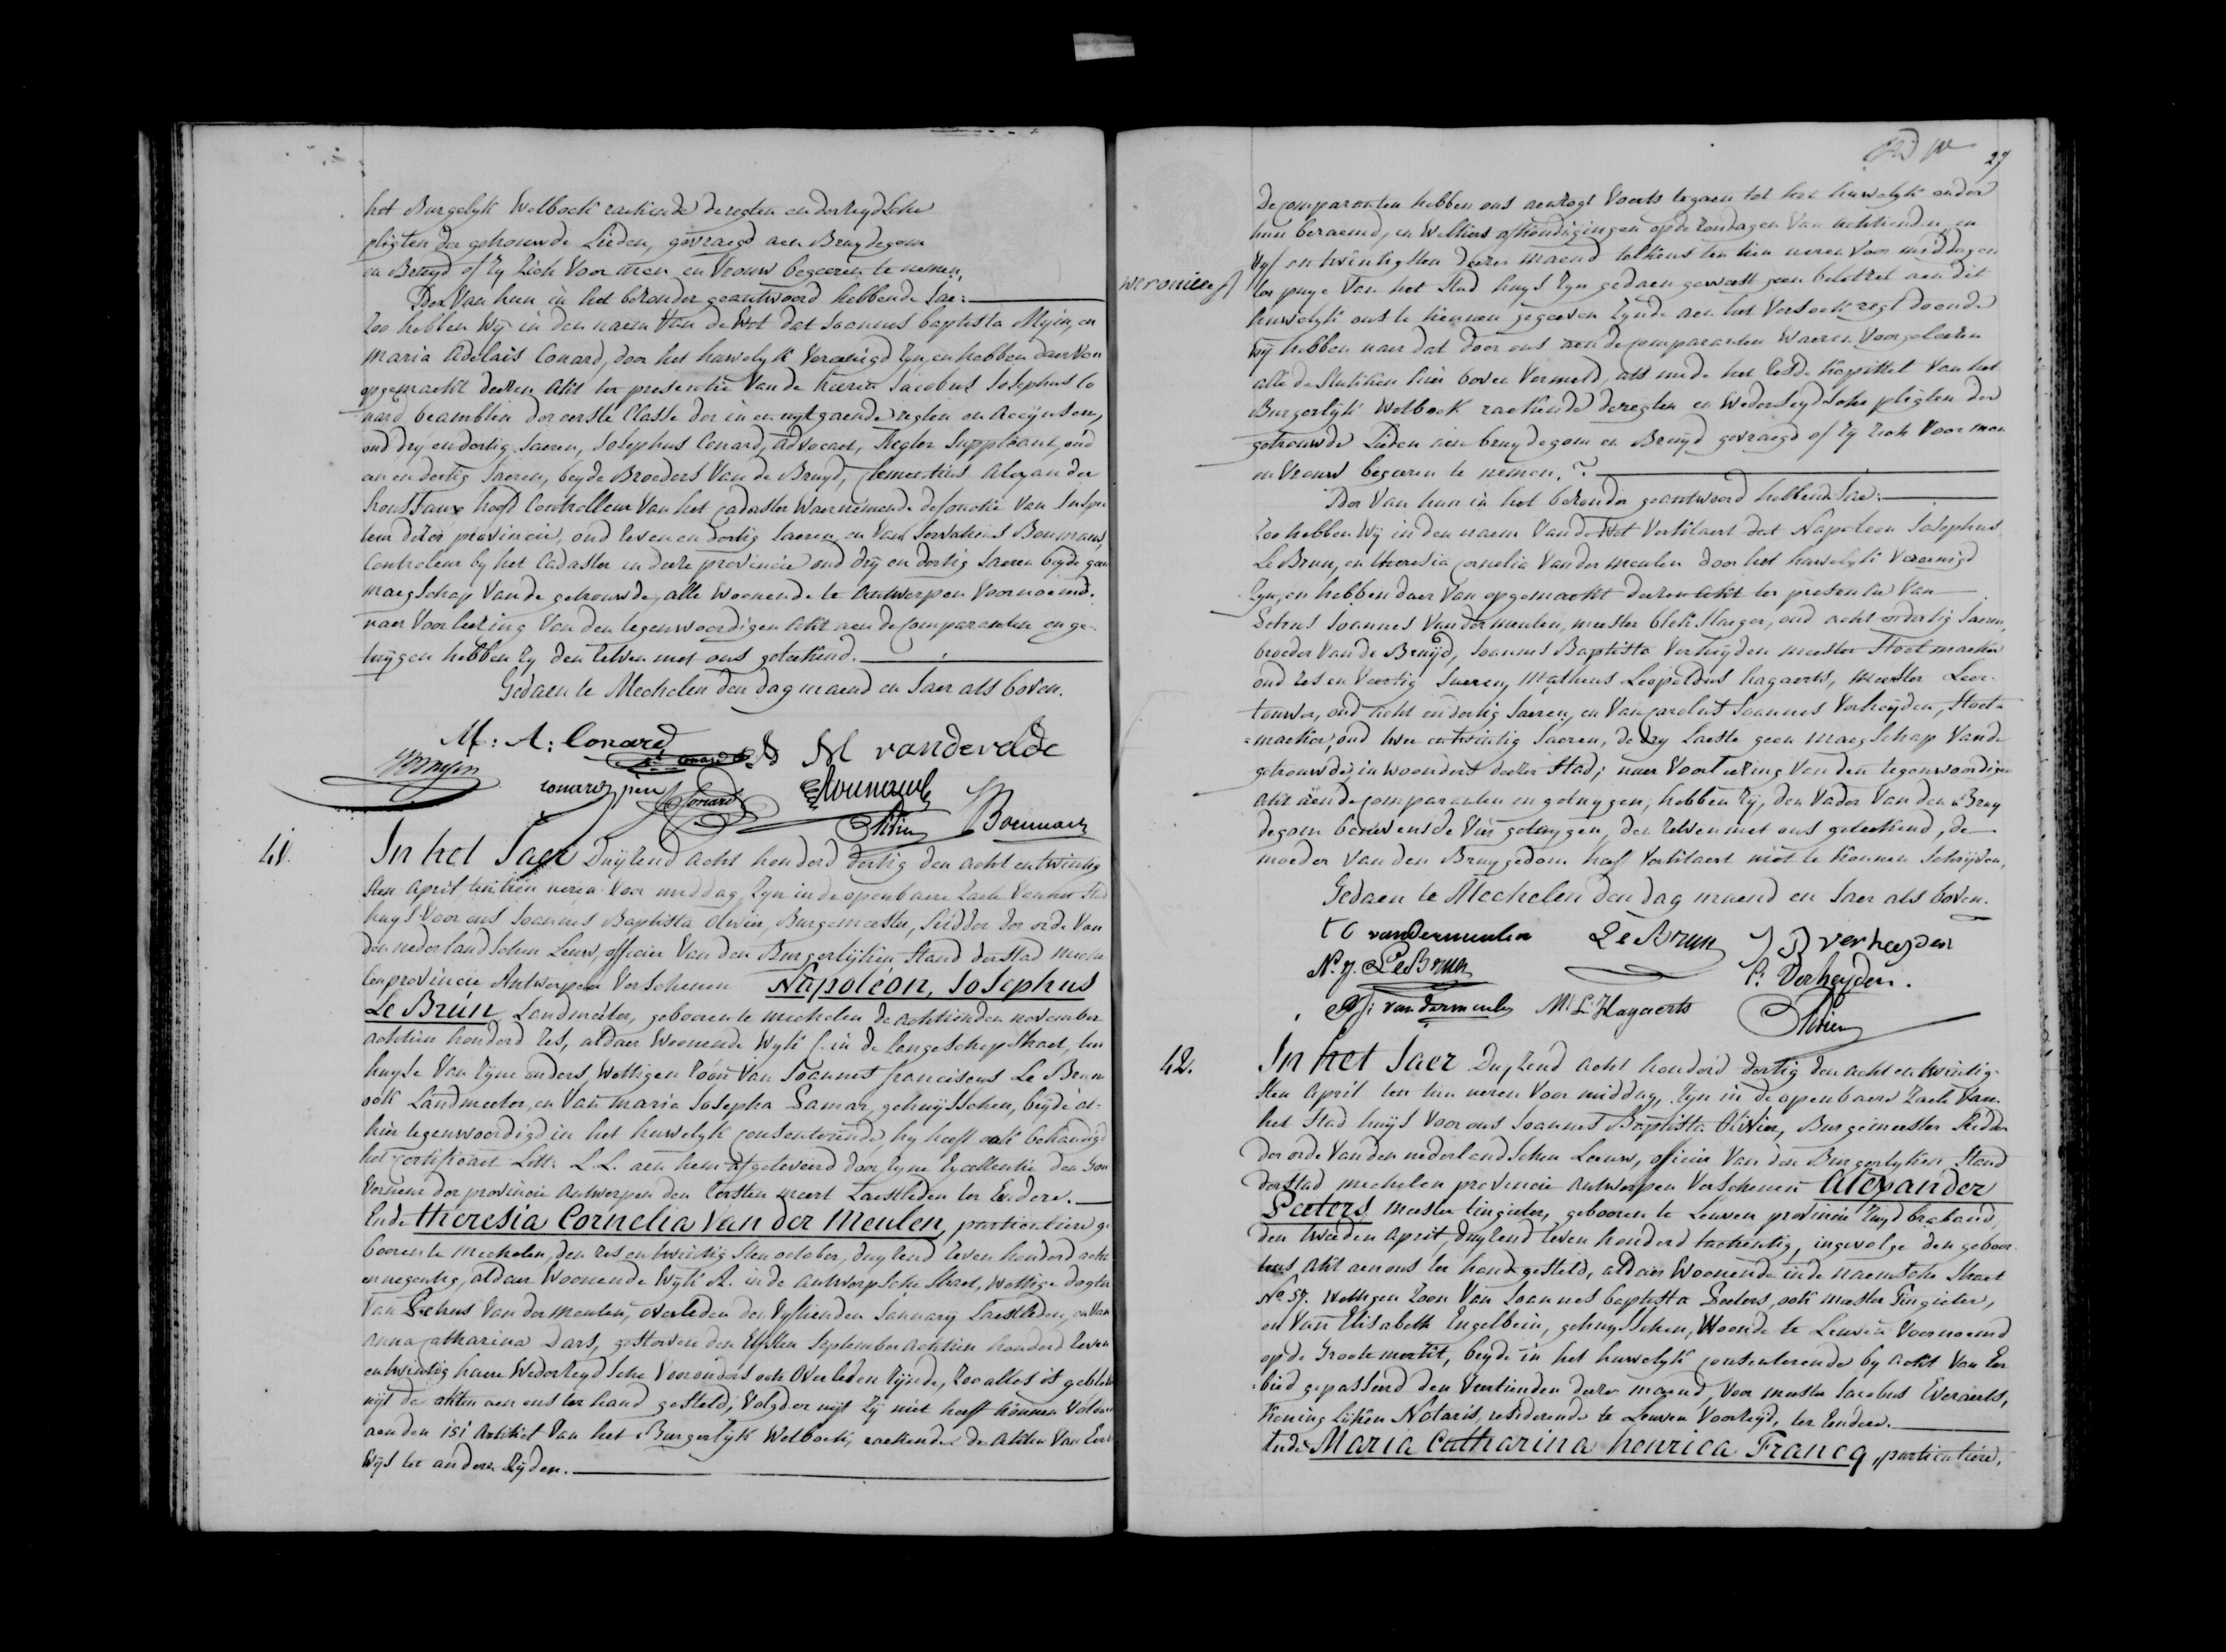 het Burgelyk Wetboek raekende de regten en derzeydsche
pligten der getrouwde Lieden, gevraegd aen Bruydegom
en Bruyd of Zy Zich Voor man en Vrouw begeeren te nemen,
Door Van hun in het bezonder geantwoord hebbende Jae:
Zoo hebben Wy in den naem Van de Wet dat Joannes baptista Myin, en
Maria Adelais Conard, door het huwelyk Vereenigd Zyn, en hebben daer Van
opgemaekt deezen Akt ter presentie Van de heeren Jacobus Josephus Co
nard beambten der eerste Classe der in en uytgaende regten en Accynsen,
oud dry en dertig Jaeren, Josephus Conard, advocaet, Regter Suppleant, oud
een en dertig Jaeren, beyde Broeders Van de Bruyd, Alexander
hoofd Controlleur Van het Cadaster Waernemende de fonctie Van Inspec
teur dezer provincie, oud zeven en dertig Jaeren, en Van Servatius Boumans,
Controleur by het Cadaster in deeze provincie oud dry en dertig Jaeren beyde geen
maegschap Van de getrouwde, alle Woonende te Antwerpen Voornoemd.
naer Voorleezing Van den tegenwoordigen Akt aen de Comparanten en ge-
tuygen hebben Zy den Zelven met ons geteekend.
Gedaen te Mechelen den dag maend en Jaer als boven.
M: A: Conard M vandevelde
conard père Conard
Olivier Boumans
41.
In het Jaer Duyzend Acht honderd dertig den acht en twintig
sten April ten tien uren Voor middag, Zyn in de openbaere Zaele Van het Stad
huys Voor ons Joannes Baptista Olivier, Burgemeester, Ridder der orde Van
den nederlandschen Leeuw, officier Van den Burgerlyken Stand der Stad Meche
len provincie Antwerpen Verscheenen Napoléon, Josephus
Le Brún Landméter, gebooren te mechelen de achtienden november
achtien honderd Zes, aldaer Woonende Wyk C. in de Lange Schipstraet, ten
huyse Van Zyne ouders, Wettigen Zóón Van Joannes franciscus Le Brun
óók Landmeeter, en Van Maria Josepha Lamar, gehuysschen, beyde al-
hier tegenwoordig in het huwelyk Consenteerende, hy heeft ook behandigd
het Certificaet Litt: L.L. aen hem afgeleverd door Zyne Excellentie den Gou
Verneur der provincie Antwerpen den Eersten meert Laestleden ter Eendere.
Ende theresia Cornelia Van der Meulen, particuliere ge
booren te Mechelen, den Zes en twintigsten october, duyzend Zeven honderd acht
en negentig, aldaer Woonende Wyk A. in de Antwerpsche Straet, Wettige dogter
Van Petrus Van der meulen, overleden den Vyftienden January Laestleden, en Van
Anna Catharina Dars, gestorven den Elfsten September achtien honderd Zeven
en twintig haere Wederzeydsche Voorouders ook Overleden Zynde, Zoo alles is gebleken
uyt de akten aen ons ter hand gesteld, Volgd er uyt Zy niet heeft konnen Voldoen
aen den 151 Artikel Van het Burgerlyk Wetboek, raekende de Akten Van Eer
byd ter andere Zyden.
27
De Comparanten hebben ons aenzogt Voorts tegaen tot het huwelyk onder
hun beraemd, en Welkers afkondigingen op de Zondagen Van achtienden, en
Vyf en twintigsten deezer maend telkens ten tien uren Voor middag en
ter puye Van het Stadhuys Zyn gedaen geweest geen beletzel aen dit
huwelyk ons te kennen gegeeven Zynde aen het Verzoek regt doende
Wy hebben naer dat door ons aen de Comparanten Waeren Voorgeleezen
alle de Stukken hier boven Vermeld, als mede het Zesde Kapittel Van het
Burgerlyk Wetboek raekende de regten en Wederzeydsche pligten der
getrouwde Lieden aen bruydegom en Bruyd gevraegd of Zy Zich Voor man
en Vrouw begeeren te nemen.?
Door Van hun in het bezonder geantwoord hebbende Jae:
Zoo hebben Wy in den naem Van de Wet Verklaert dat Napoleon Josephus
Le Brun, en theresia Cornelia Van der meulen door het huwelyk Vereenigd
Zyn, en hebben daer Van opgemaekt deezen akt ter presentie Van
Petrus Joannes Van der meulen, meester blekslaeger, oud acht en dertig Jaeren,
broeder Van de Bruyd, Joannes Baptista Verheyden meester Stoelmaeker
oud Zes en Veertig Jaeren, Matheus Leopoldus hagaerts, meester Leer-
touwer, oud acht en dertig Jaeren, en Van Carolus Joannes Verheyden, Stoel-
maeker, oud twee en twintig Jaeren, de dry Laeste geen maegschap Van de
getrouwde, inwoonders deezer Stad; naer Voorleezing Van den tegenwoordigen
Akt aen de Comparanten en getuygen, hebben Zy, den Vader Van den Bruy
degom benevens de Vier getuygen, den Zelven met ons geteekend, de
moeder Van den Bruygedom heeft Verklaert niet te konnen Schryven.
Gedaen te Mechelen den dag maend en Jaer als boven.
T C vandermeulen Le Brun J B verheyden
N. J. LeBrun C. Verheyden.
P J: vandermeulen M. L. Hagaerts Olivier
42.
In het Jaer Duyzend Acht honderd dertig den acht en twintig-
sten April ten tien uren Voor middag, Zyn in de openbaere Zaele Van
het Stad huys Voor ons Joannes Baptista Olivier, Burgemeester Ridder
der orde Van den nederlandschen Leeuw, officier Van den Burgerlyken Stand
der Stad mechelen provincie Antwerpen Verscheenen Alexander
Peeters meester tingieter, gebooren te Leuven provincie Zuyd braband,
den tweeden April, duyzend Zeven honderd tachentig, ingevolge den geboor-
tens akt aen ons ter hand gesteld, aldaer Woonende in de naemsche Straet
No 57. Wettigen Zoon Van Joannes baptista Peeters, ook meester Tingieter,
en Van Elisabeth Engelbein, gehuysschen, Woonde te Leuven Voornoemd
op de Groote merkt, beyde in het huwelyk Consenterende by Acht Van Eer
bied gepasseerd den Veertienden deezer maend, Voor meester Jacobus Everaerts,
Koninglyken Notaris, residerende te Leuven Voorzeyd, ter Eendere.
Ende Maria Catharina henrica Francq, particuliere,